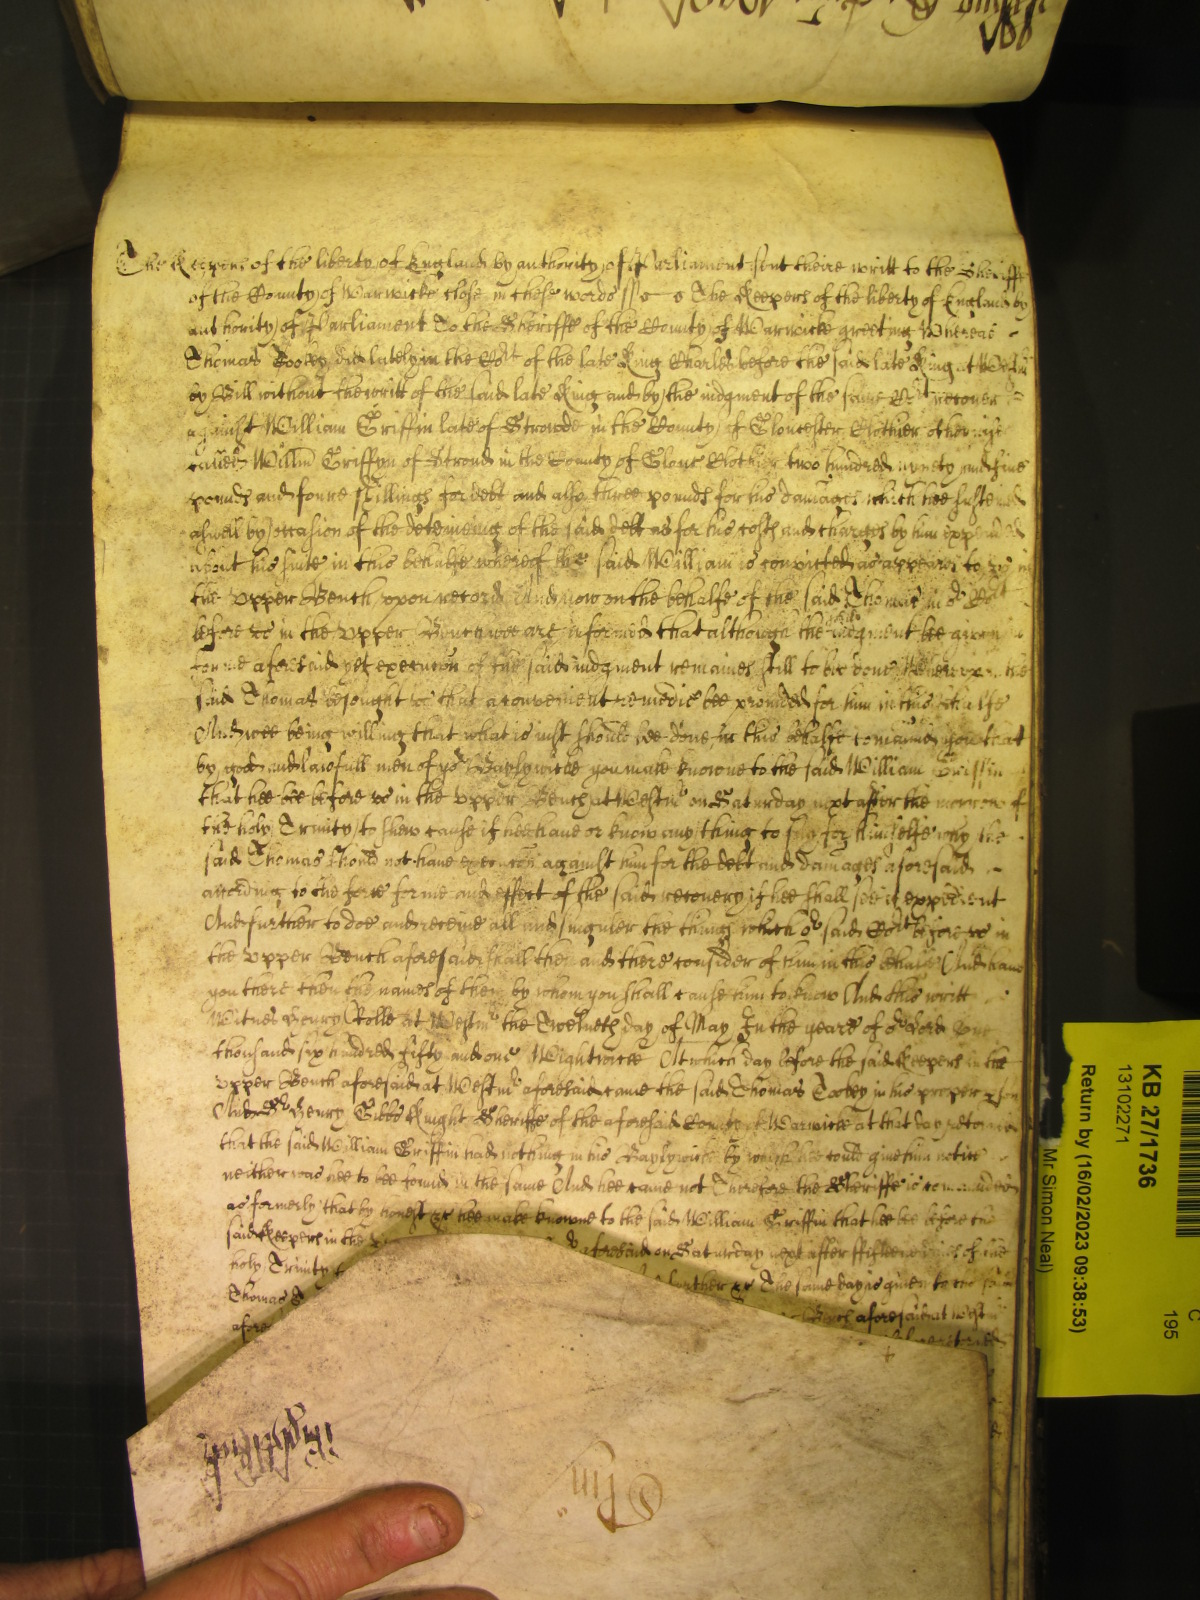 The Keepers of the liberty of England by authority of Parliament sent theire writt to the Sheriffe
of the County of Warwicke close in these words // The Keepers of the liberty of England by
authority of Parliament To the Sheriffe of the County of Warwicke greeting Whereas
Thomas Tookey did lately in the Cort of the late King Charles before the said late King at Westm
by Bill without the writt of the said late King and by the iudgment of the same Cort recover
against William Griffin late of Strowde in the County of Gloucester Clothier otherwise
called Willm Griffyn of Stroud in the County of Glouc Clothier two hundred nynety and five
pounds and foure shillings for debt and also three pounds for his damages which hee susteined
aswell by occasion of the deteineing of the said debt as for his costs and charges by him expended
about his suite in this behalfe whereof the said William is convicted as appeares to us in
the Upper Bench upon record And now on the behalfe of the said Thomas in or Cort
before us in the Upper Bench wee are informed that although the said iudgment bee given in
forme aforesaid yet execucon of the said iudgment remaines still to bee done Wherefore the
said Thomas besought us that a convenient remedie bee provided for him in this behalfe
And wee being willing that what is iust should bee done in this behalfe command you that
by good and lawfull men of yor Baylywicke you make knowne to the said William Griffin
that hee bee before us in the Upper Bench at Westmr on Saturday next after the morrow of
the holy Trinity to shew cause if hee have or know any thing to say for himselfe why the
said Thomas should not have execucon against him for the debt and damages aforesaid
according to the force forme and effect of the said recovery if hee shall see it expedient
And further to doe and receive all and singuler the things which or said Cort before us in
the Upper Bench aforesaid shall then and there consider of him in this behalfe And have
you there then the names of them by whom you shall cause him to know And this writt
Witnes Henry Rolle at Westmr the Twelveth day of May In the yeare of or Lord One
thousand six hundred fifty and one Wightwicke At which day before the said Keepers in the
Upper Bench aforesaid at Westmr aforesaid came the said Thomas Tookey in his proper pson
And Sr Henry Gibbs Knight Sheriffe of the aforesaid County of Warwicke at that day retorned
that the said William Griffin had nothing in his Baylywicke by which hee could give him notice
neither was hee to bee found in the same And hee came not Therefore the Sheriffe is commanded
as formerly that by honest &c hee make knowne to the said William Griffin that hee bee before the
said Keepers in the aforesaid on Saturday next after fifteene dayes of the
holy Trinity further &c The same day is given to the said
Thomas Bench aforesaid at Westmr
afore retorned
KB 27/1736
13102271
Return by (16/02/2023 09:38:53)
Mr Simon Neal)
C
195